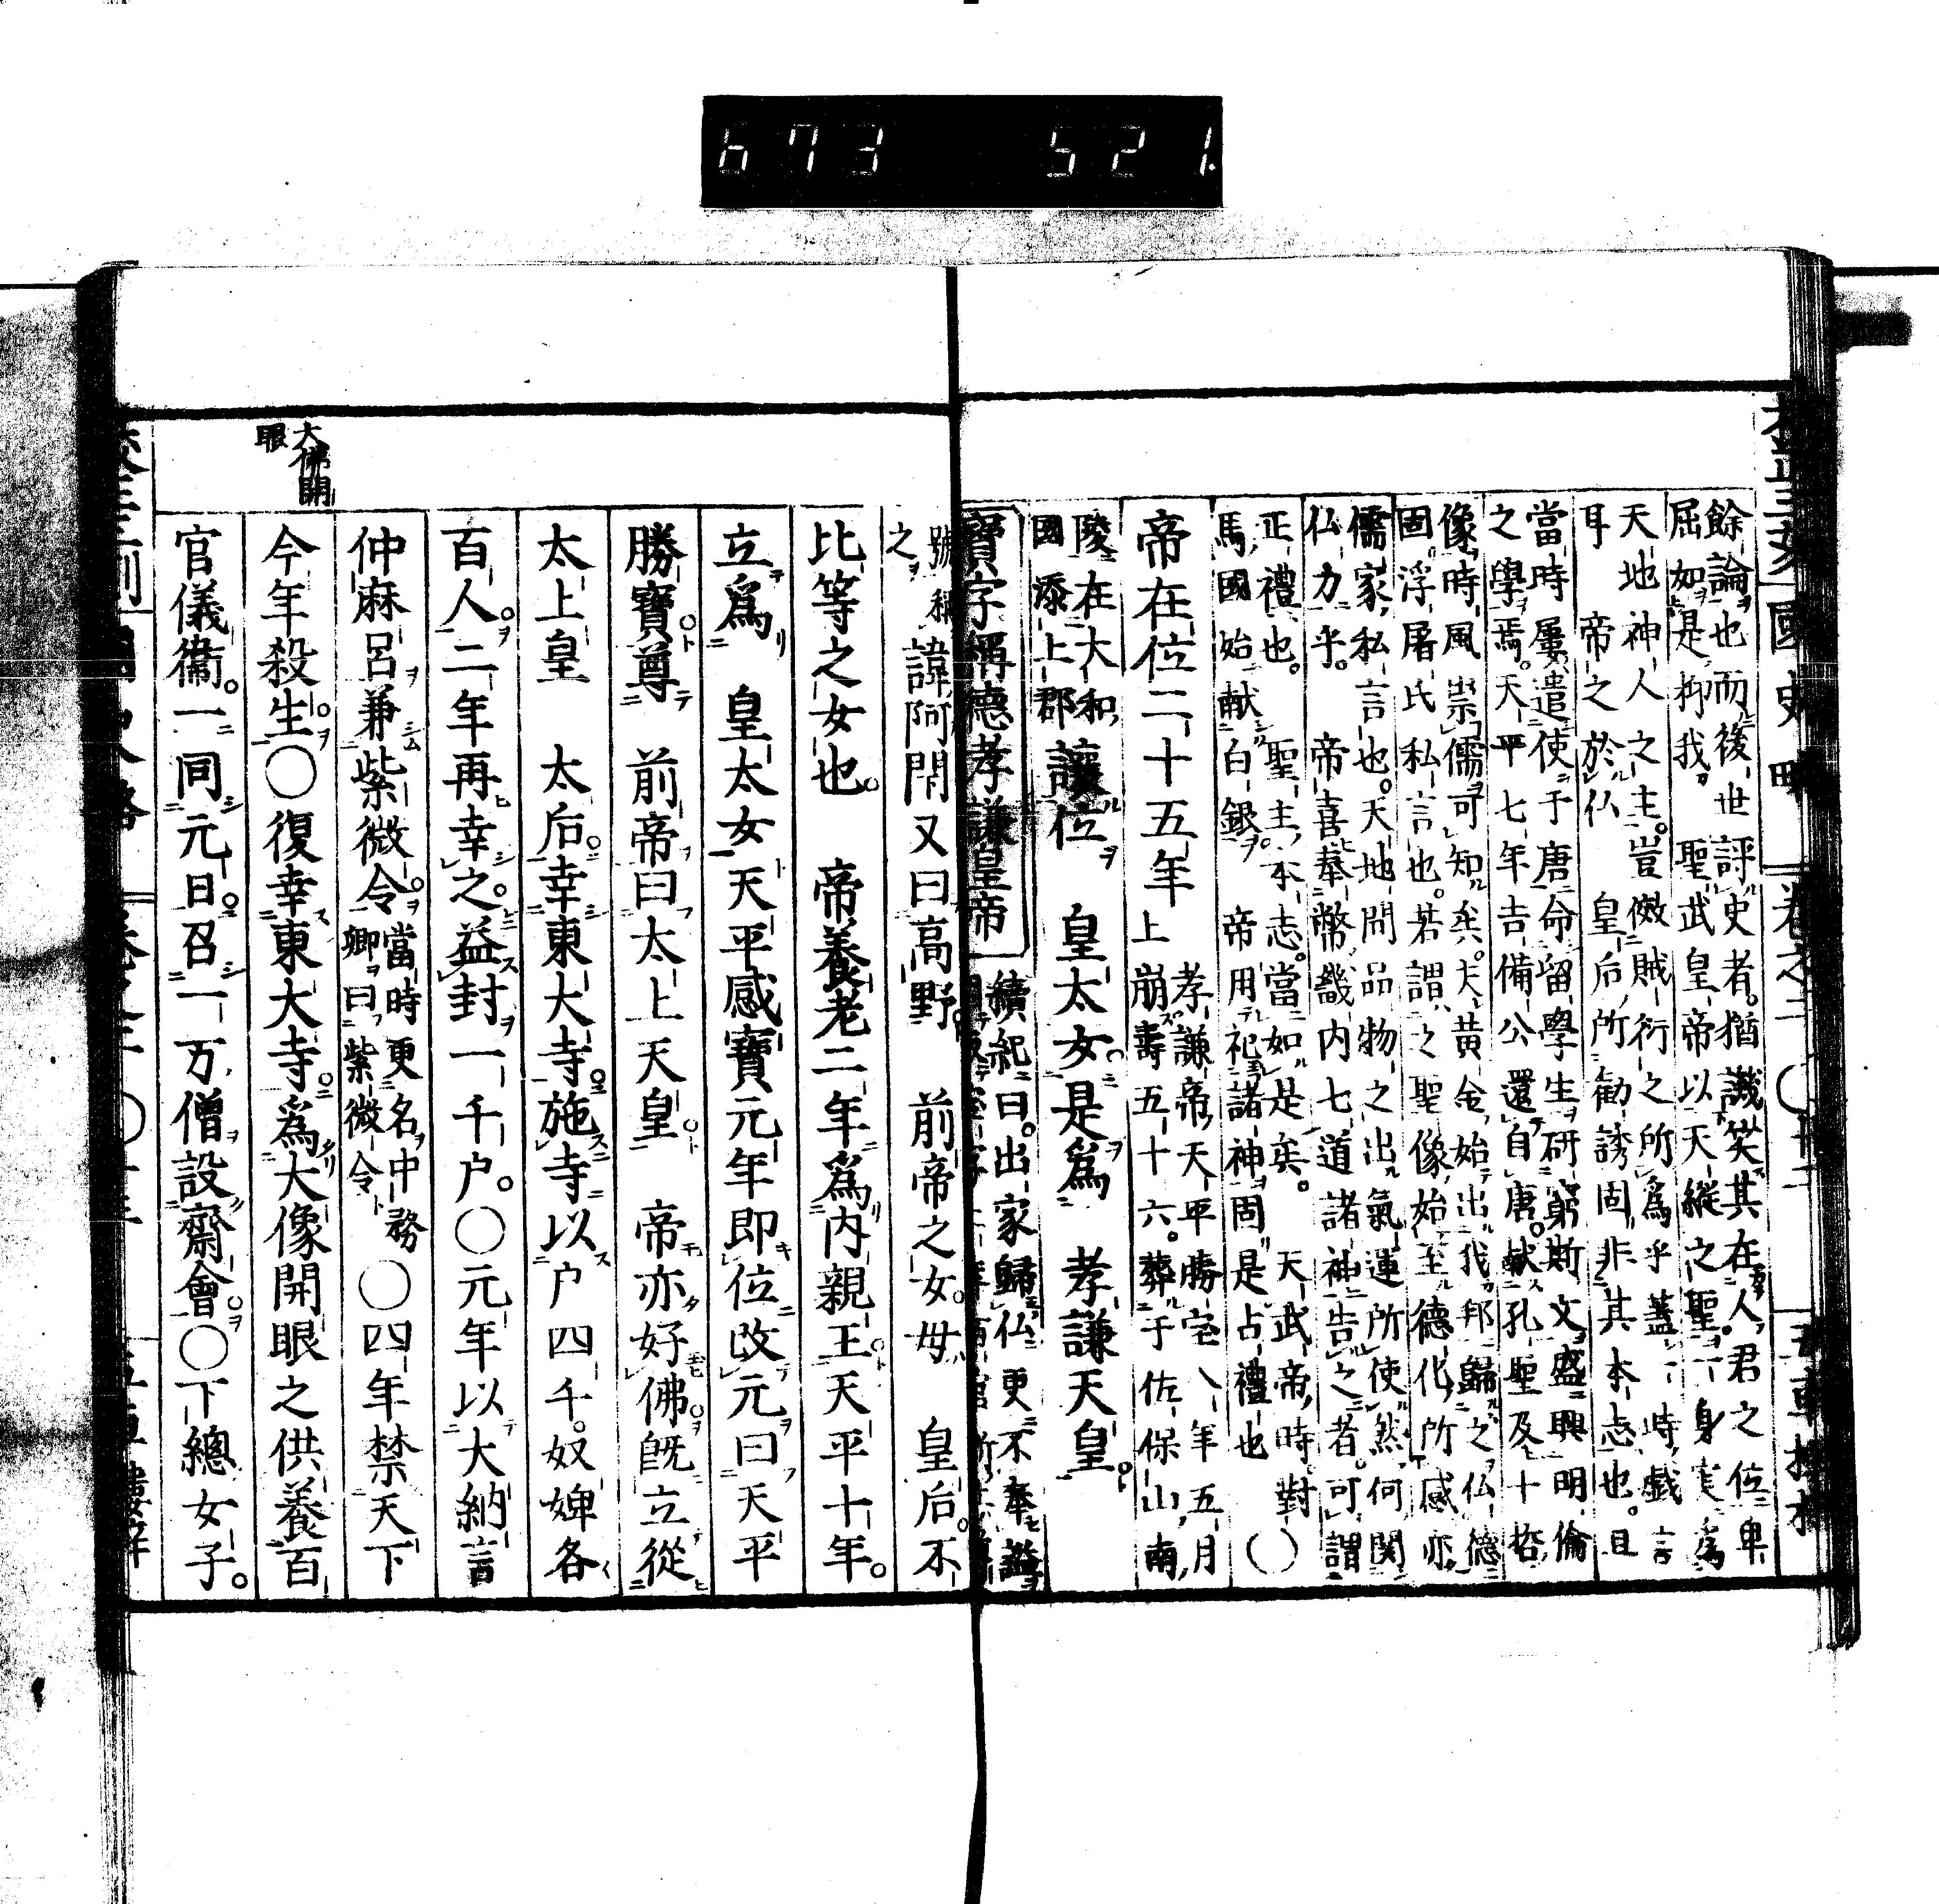 673 521.
國史略 卷之二 〇十二
餘論也而後世評史者猶譏笑其在人君之位卑
屈如是抑我 聖武皇帝以天縱之聖一身為
天地神人之主豈傚賊衍之所為乎蓋一時戲言
耳 帝之於仏 皇后所勸誘固非其本志也且
當時屢遣使于唐命留學生研窮斯文盛興明倫
之學焉天平七年吉備公還自唐献孔聖及十哲
像時風崇儒可知矣夫黄金始出我邦歸之仏德
固浮屠氏私言也若謂之聖像始至德化所感亦
儒家私言也天地間品物之出氣運所使然何関
仏力乎 帝喜奉幣畿内七道諸神告之者可謂
正禮也 聖主本志當如是矣 天武帝時對
馬國始献白銀 帝用祀諸神固是占禮也 〇
帝在位二十五年 孝謙帝天平勝宝八年五月
上崩壽五十六葬于佐保山南
陵在大和
國添上郡 讓位 皇太女是為 孝謙天皇
寶字稱德孝謙皇帝 續紀曰出家歸仏更不奉謚
號稱
之 諱阿閇又曰高野 前帝之女母 皇后不
比等之女也 帝養老二年為内親王天平十年
立為 皇太女天平感寶元年即位改元曰天平
勝寶尊 前帝曰太上天皇 帝亦好佛既立從
太上皇 太后幸東大寺施寺以户四千奴婢各
百人二年再幸之益封一千户〇元年以大納言
仲麻呂兼紫微令 當時更名中務
卿曰紫微令 〇四年禁天下
大佛開
眼
今年殺生〇復幸東大寺為大像開眼之供養百
官儀衞一同元日召一万僧設齋會〇下總女子